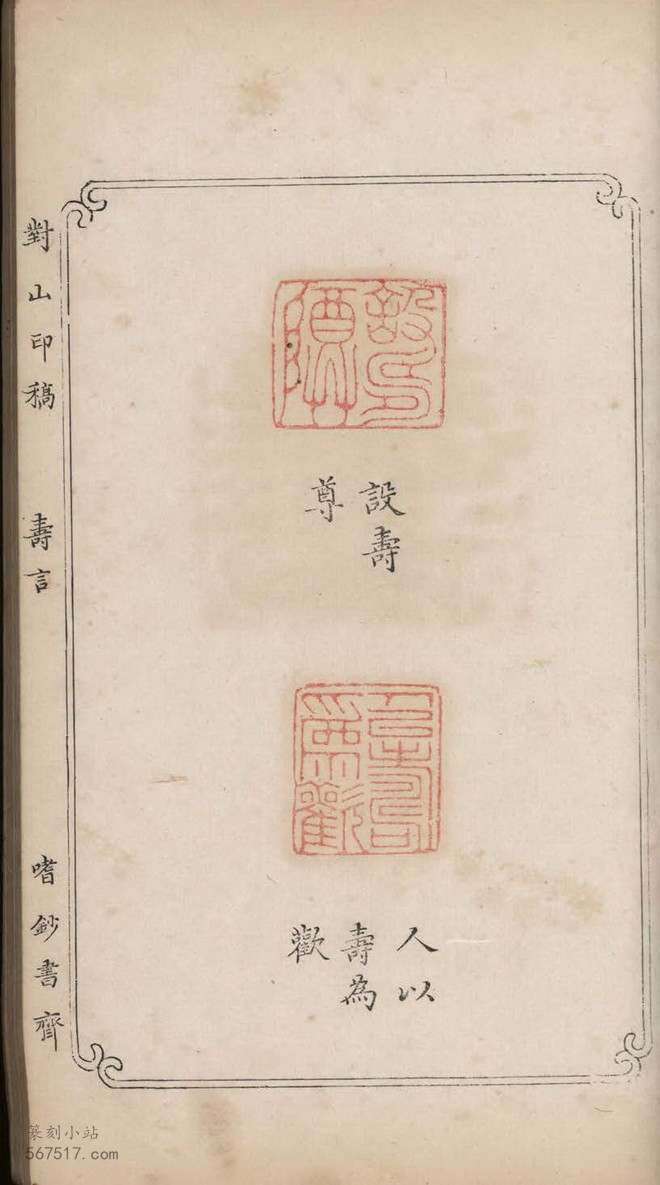 設壽
尊
人以
壽為
歡
對山印稿 壽言 嗜鈔書齊
篆刻小站
567517.com